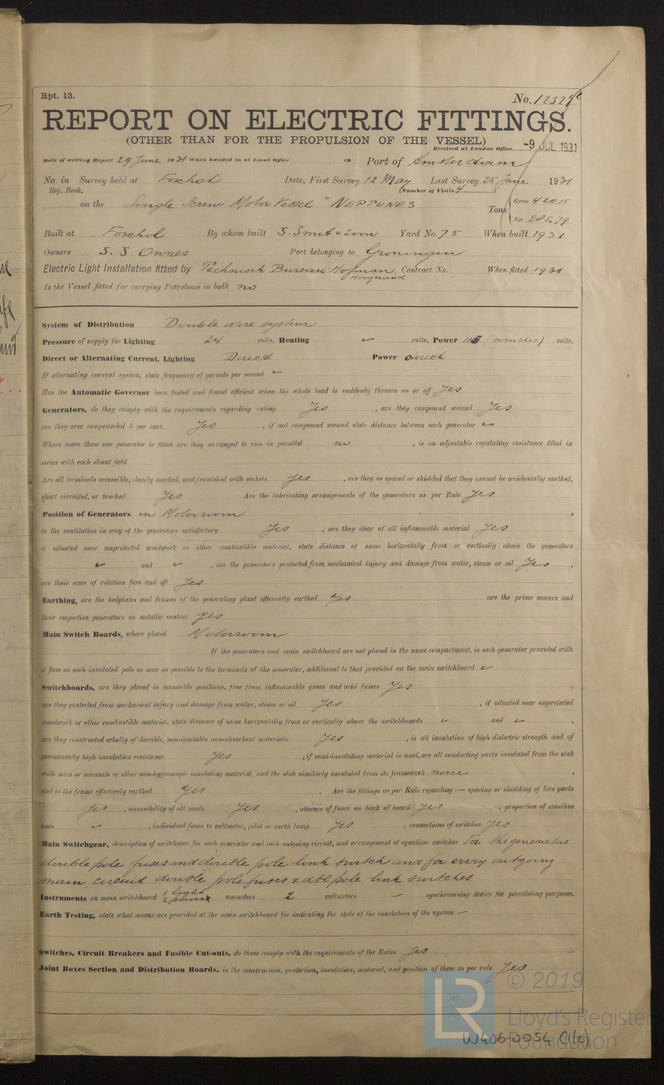 Rpt. 13.
No. 12327c
REPORT ON ELECTRIC FITTINGS.
(OTHER THAN FOR THE PROPULSION OF THE VESSEL)
Received at London Office -9 JUL 1931
Date of writing Report 29 June 1931 When handed in at Local Office 19 Port of Amsterdam
No. in Survey held at Foxhol Date, First Survey 12 May Last Survey 25 June 1931
Reg. Book. (Number of Visits 4
on the Single Screw Motor Vessel "NEPTUNES Tons Gross 420.15
Net 285.79
Built at Foxhol By whom built S. Smit & Zoon Yard No. 75 When built 1931
Owners S. S. Onnes Port belonging to Groningen
Electric Light Installation fitted by Technisch Bureau Hofman Contract No. When fitted 1931
Hoogezand
Is the Vessel fitted for carrying Petroleum in bulk no
System of Distribution Double wire system
Pressure of supply for Lighting 24 volts, Heating volts, Power 115 (winches) volts.
Direct or Alternating Current, Lighting Direct Power direct
If alternating current system, state frequency of periods per second
Has the Automatic Governor been tested and found efficient when the whole load is suddenly thrown on or off Yes
Generators, do they comply with the requirements regarding rating Yes , are they compound wound Yes
are they over compounded 5 per cent. Yes , if not compound wound state distance between each generator
Where more than one generator is fitted are they arranged to run in parallel no , is an adjustable regulating resistance fitted in
series with each shunt field
Are all terminals accessible, clearly marked, and furnished with sockets Yes , are they so spaced or shielded that they cannot be accidentally earthed,
short circuited, or touched Yes Are the lubricating arrangements of the generators as per Rule Yes
Position of Generators in Motorroom
is the ventilation in way of the generators satisfactory Yes , are they clear of all inflammable material Yes
if situated near unprotected woodwork or other combustible material, state distance of same horizontally from or vertically above the generators
and , are the generators protected from mechanical injury and damage from water, steam or oil Yes ,
are their axes of rotation fore and aft Yes
Earthing, are the bedplates and frames of the generating plant efficiently earthed Yes are the prime movers and
their respective generators in metallic contact Yes
Main Switch Boards, where placed Motorroom
If the generators and main switchboard are not placed in the same compartment, is each generator provided with
a fuse on each insulated pole as near as possible to the terminals of the generator, additional to that provided on the main switchboard
Switchboards, are they placed in accessible positions, free from inflammable gases and acid fumes Yes ,
are they protected from mechanical injury and damage from water, steam or oil Yes , if situated near unprotected
woodwork or other combustible material, state distance of same horizontally from or vertically above the switchboards and ,
are they constructed wholly of durable, non-ignitable non-absorbent materials Yes , is all insulation of high dielectric strength and of
permanently high insulation resistance Yes , if semi-insulating material is used, are all conducting parts insulated from the slab
with mica or micanite or other non-hygroscopic insulating material, and the slab similarly insulated from its framework none ,
and is the frame effectively earthed Yes Are the fittings as per Rule regarding :— spacing or shielding of live parts
Yes , accessibility of all parts Yes , absence of fuses on back of board Yes , proportion of omnibus
bars , individual fuses to voltmeter, pilot or earth lamp Yes , connections of switches Yes
Main Switchgear, description of switchgear for each generator and each outgoing circuit, and arrangement of equaliser switches For the generators
double pole fuses and double pole link switch and for every outgoing
main circuit double pole fuses & dble pole link switches
Instruments on main switchboard 1 light 2 power ammeters 2 voltmeters — synchronising device for paralleling purposes.
Earth Testing, state what means are provided at the main switchboard for indicating the state of the insulation of the system
Switches, Circuit Breakers and Fusible Cut-outs, do these comply with the requirements of the Rules Yes
Joint Boxes Section and Distribution Boards, is the construction, protection, insulation, material, and position of these as per rule Yes
© 2019
LR
Lloyd's Register
Foundation
W406-0054 (1/2)